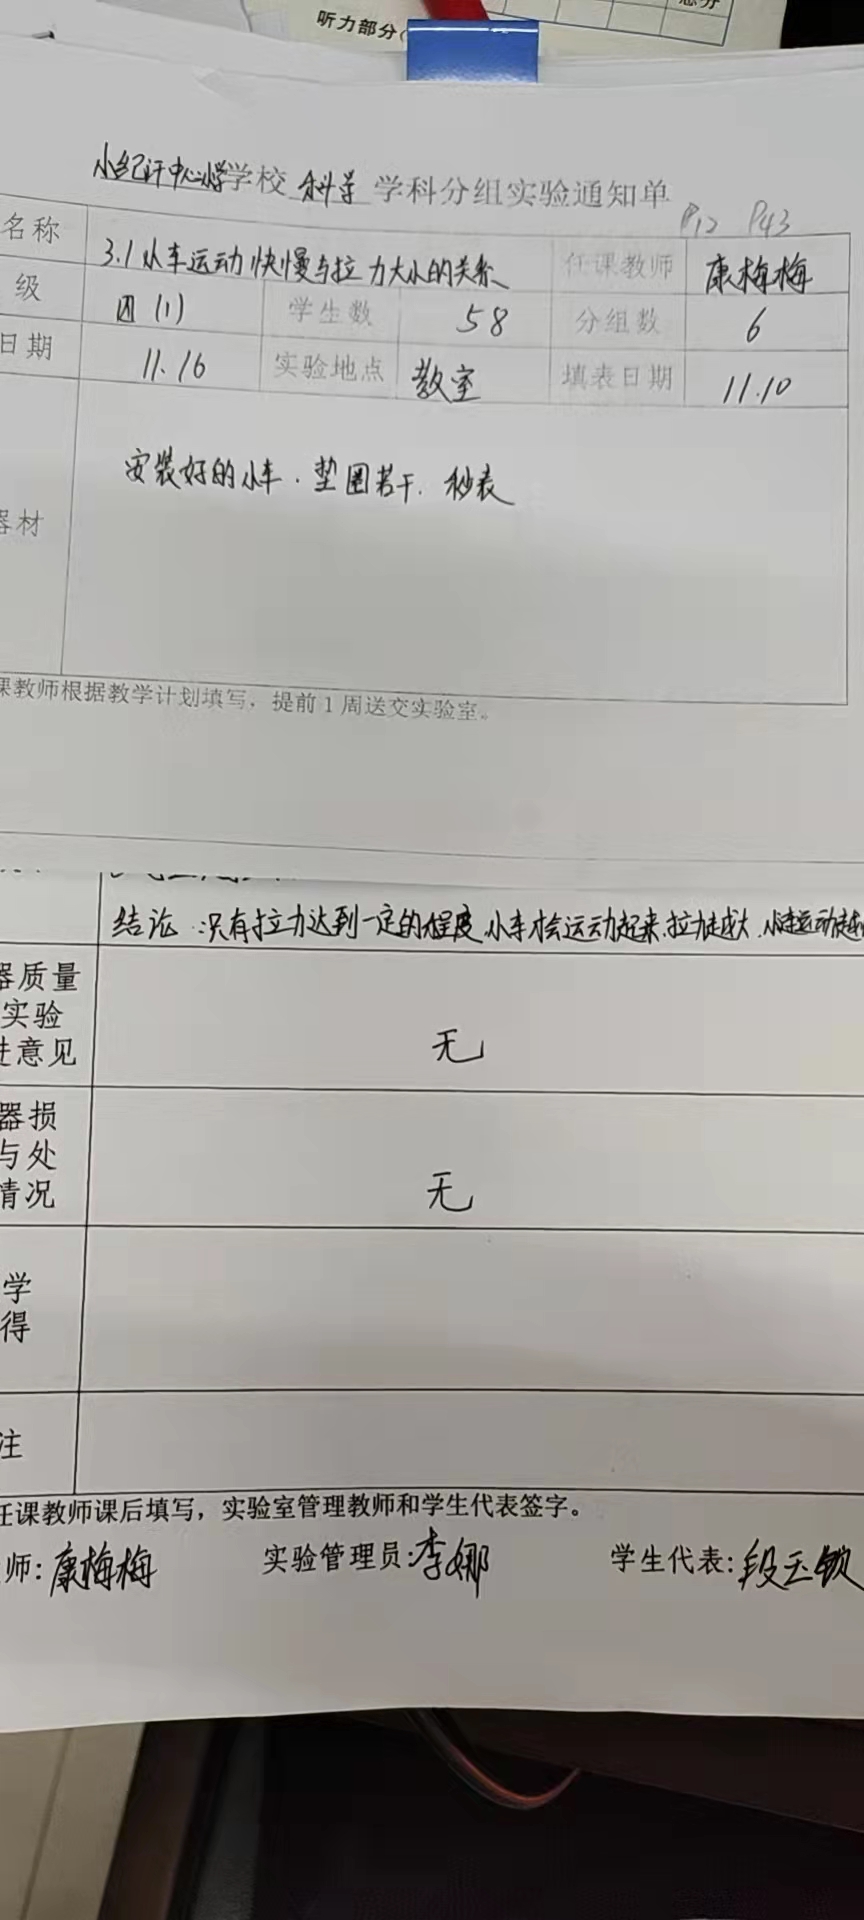 听力部分(
小纪汗中心小学学校 科学 学科分组实验通知单
P12 P43
名称 3.1小车运动快慢与拉力大小的关系 任课教师 康梅梅
级 四(1) 学生数 58 分组数 6
日期 11.16 实验地点 教室 填表日期 11.10
器材 安装好的小车.垫圈若干.秒表
课教师根据教学计划填写，提前1周送交实验室。
结论:只有拉力达到一定的程度,小车才会运动起来.拉力越大.小车运动越
器质量
实验
进意见 无
器损
与处
情况 无
学
得
注
任课教师课后填写，实验室管理教师和学生代表签字。
师:康梅梅 实验管理员:李娜 学生代表:段玉锁